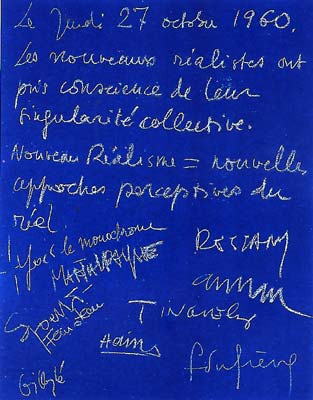 Le Jeudi 27 octobre 1960.
Les nouveaux réalistes ont
pris conscience de leur
singularité collective.
Nouveau Réalisme = nouvelles
approches perceptives du
réel.
Yves le monochrome
Martial Raysse
RESTANY
Arman
Spoerri
Tinguely
Hains
Dufrêne
Villeglé